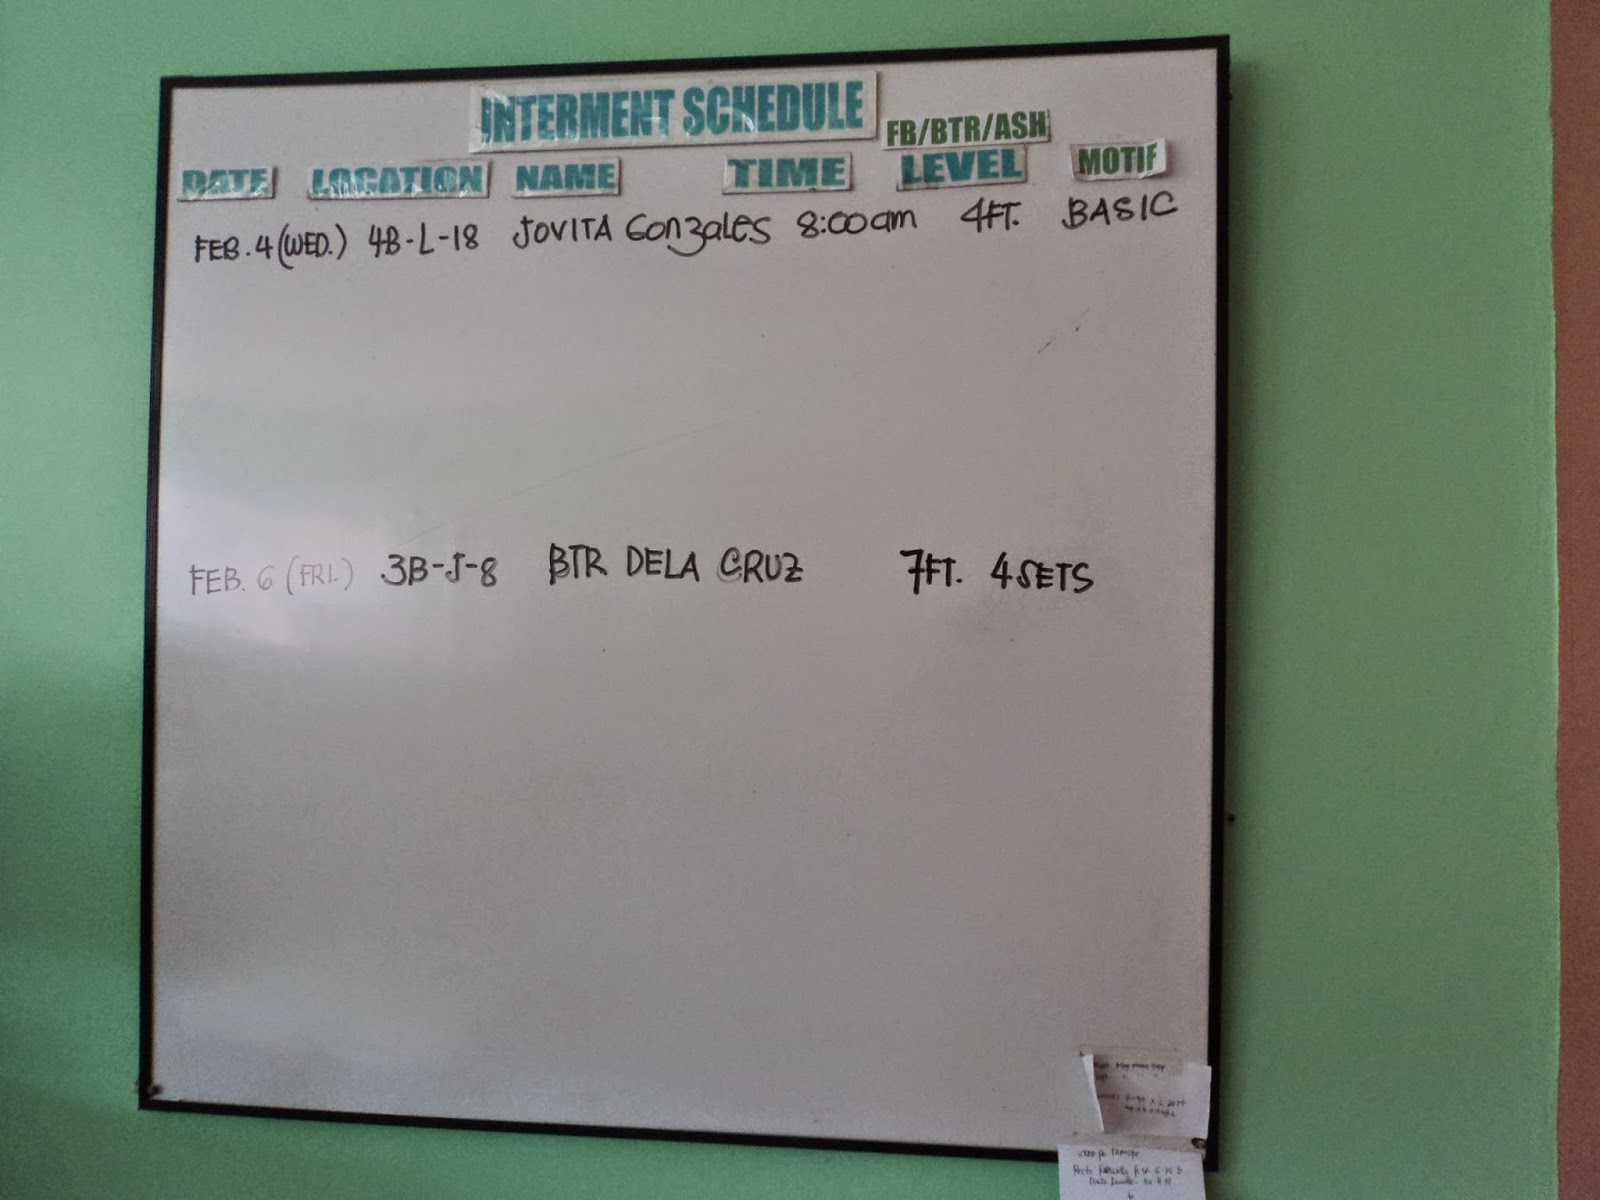 INTERMENT SCHEDULE
FB/BTR/ASH
DATE LOCATION NAME TIME LEVEL MOTIF
FEB. 4 (WED.) 4B-L-18 JOVITA GonzaLES 8:00am 4FT. BASIC
FEB. 6 (FRI.) 3B-J-8 BTR DELA CRUZ 7FT. 4 SETS